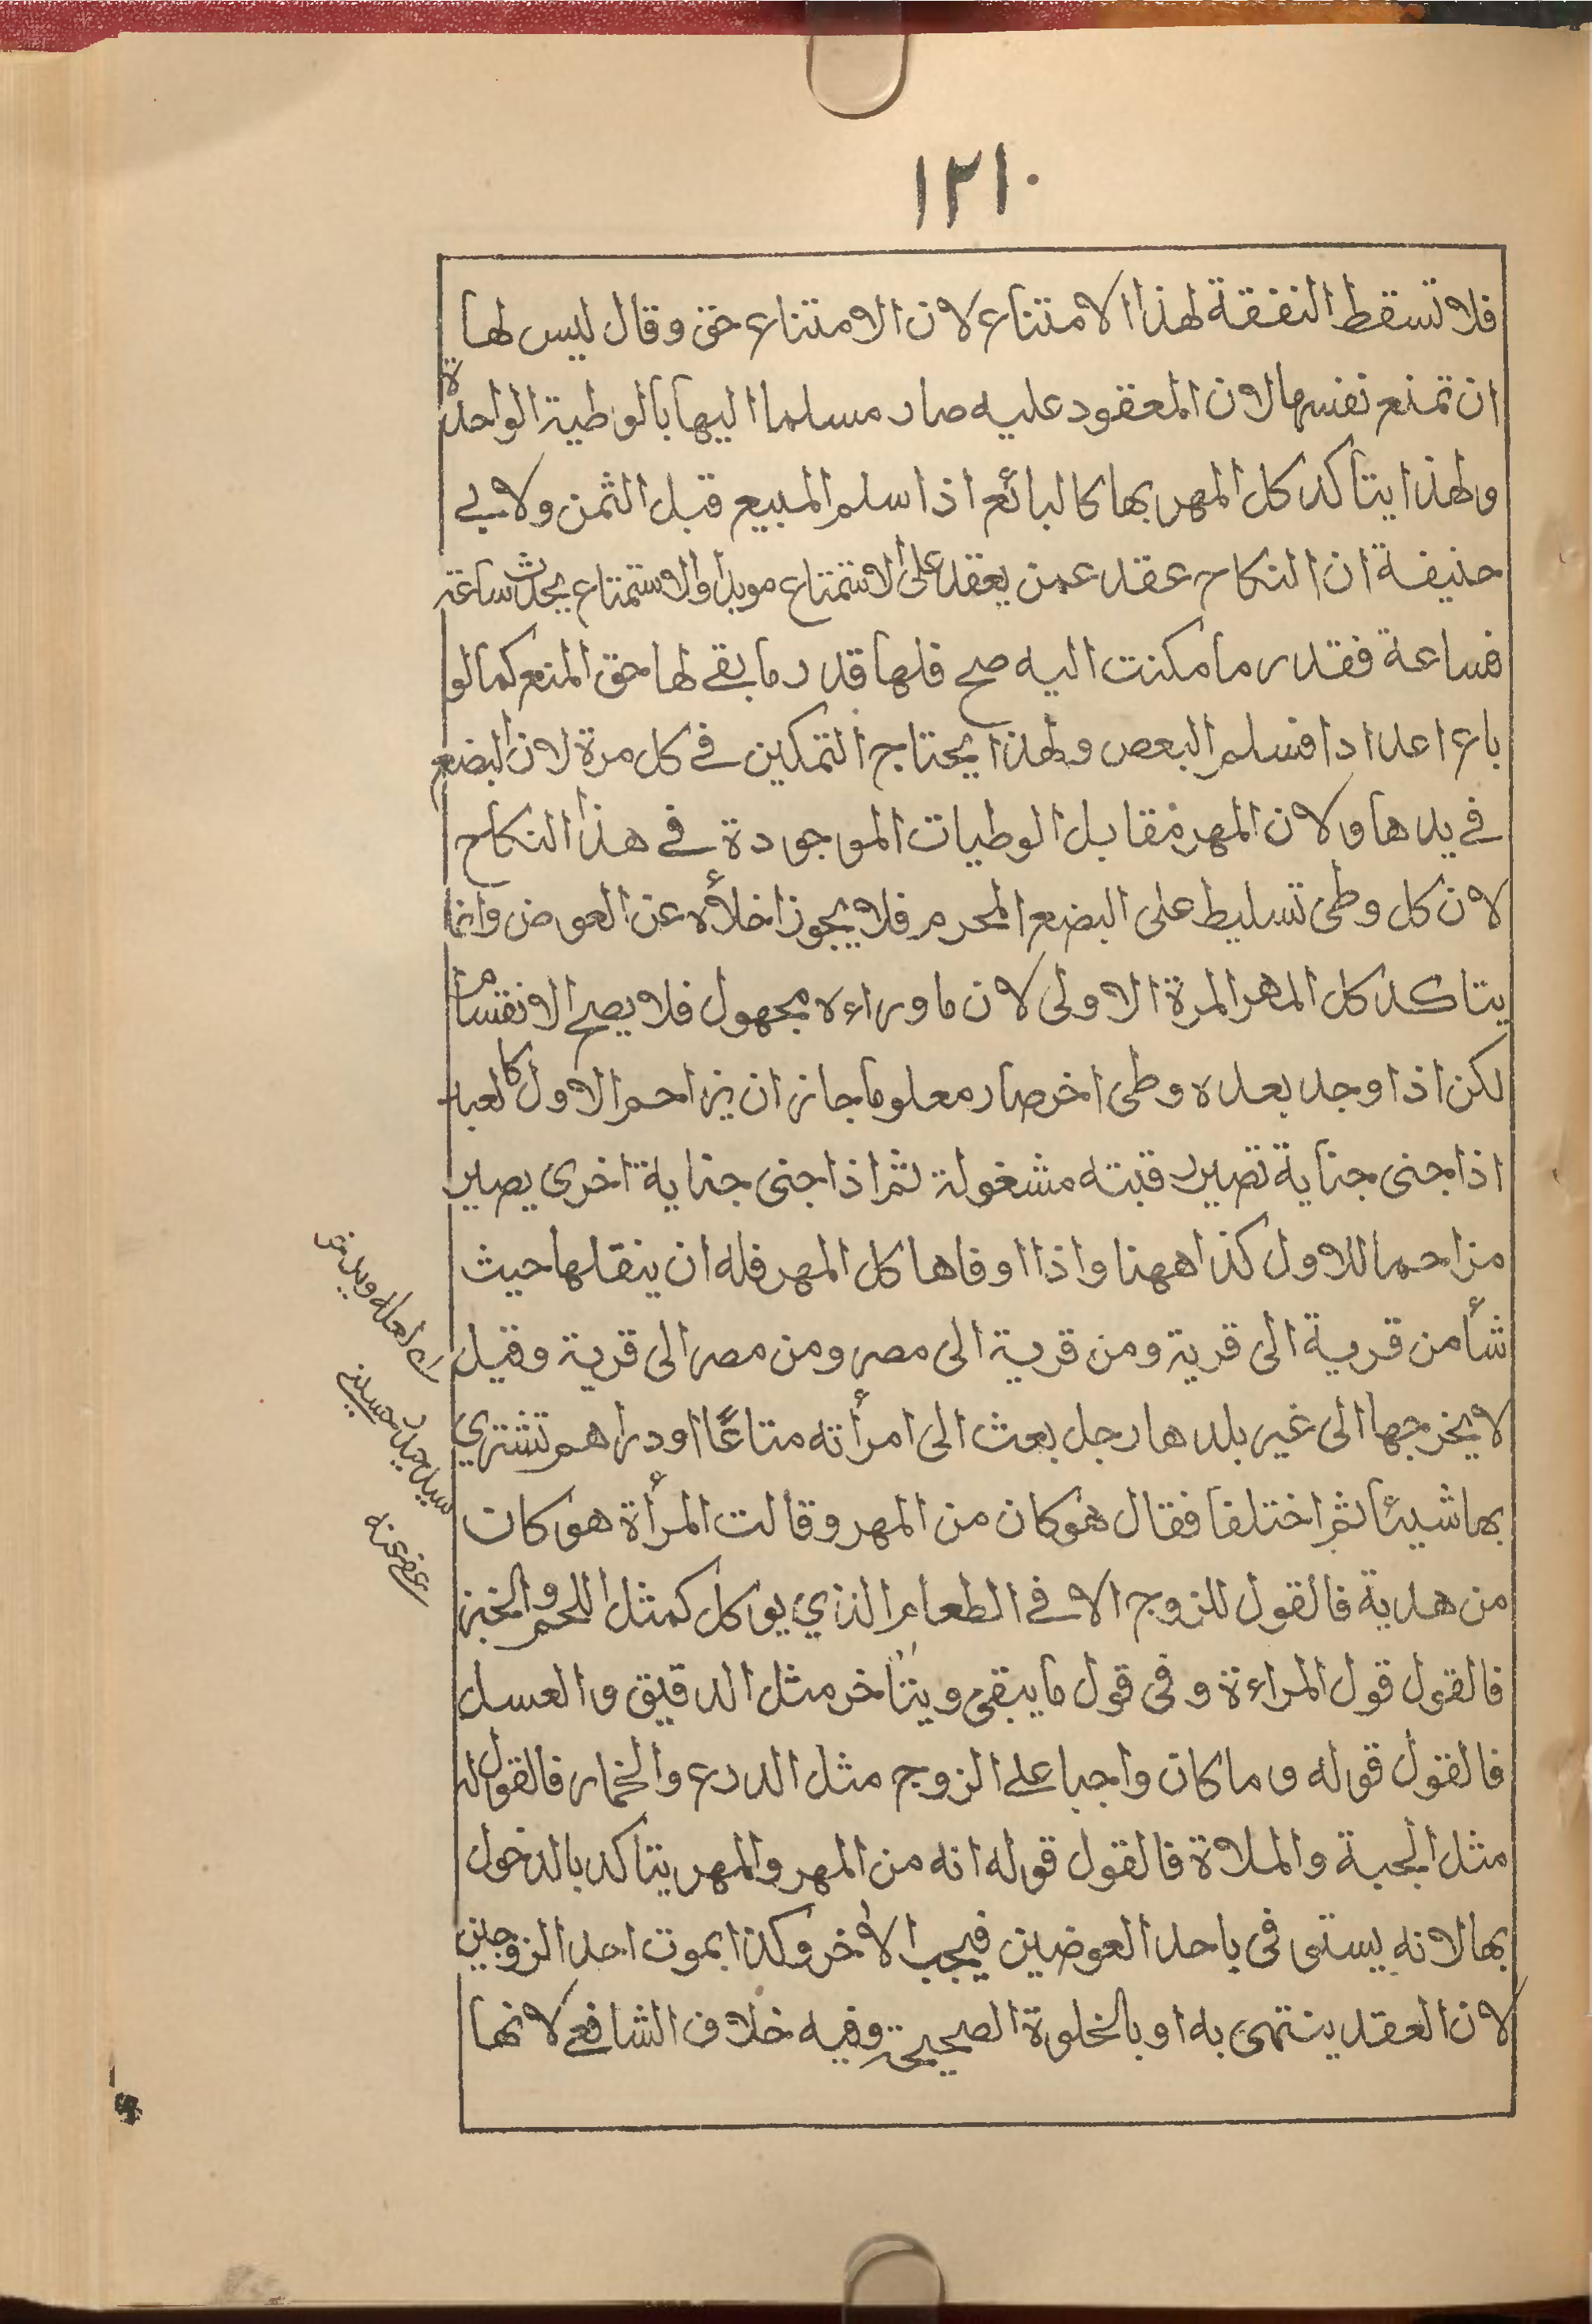 ١٢١٠
فلا تسقط النفقة لهذا الامتناع لان الامتناع حق وقال ليس لها
ان تمنع نفسها لان المعقود عليه صار مسلما اليها بالوطية الواحدة
ولهذا يتأكد كل المهر بها كالبائع اذا سلم المبيع قبل الثمن ولابي
حنيفة ان النكاح عقد عمن يعقد على الاستمتاع موبدا والاستمتاع يحدث ساعة
فساعة فقدر ما مكنت اليه صح فلها قدر ما بقي لها حق المنع كما لو
باع اعدادا فسلم البعص ولهذا يحتاج التمكين في كل مرة لان البضع
في يدها ولان المهر مقابل الوطيات الموجودة في هذا النكاح
لان كل وطى تسليط على البضع المحرم فلا يجوز اخلأه عن العوض وانما
يتاكد كل المهر المرة الاولى لان ما وراءه مجهول فلا يصح الانقسام
لكن اذا وجد بعده وطى اخر صار معلوما جاز ان يزاحم الاول كالعبد
اذا جنى جناية تصير رقبته مشغولة ثم اذا جنى جناية اخرى يصير
مزاحما للاول كذا ههنا واذا اوفاها كل المهر فله ان ينقلها حيث
شأ من قرية الى قرية ومن قرية الى مصر ومن مصر الى قرية وقيل
لا يخرجها الى غير بلدها رجل بعث الى امرأته متاعًا او دراهم تشتري
بها شيئا ثم اختلفا فقال هو كان من المهر وقالت المرأة هو كان
من هدية فالقول للزوج الا في الطعام الذي يوكل كمثل اللحم والخبز
فالقول قول المراءة وفى قول ما يبقى ويتأخر مثل الدقيق والعسل
فالقول قوله وما كان واجبا على الزوج مثل الدرع والخمار فالقول له
مثل الجبة والملاة فالقول قوله انه من المهر والمهر يتاكد بالدخول
بها لانه يستوفى باحد العوضين فيجب الاخر وكذا بموت احد الزوجين
لان العقد ينتهى به او بالخلوة الصحيحة وفيه خلاف الشافعي لانها
لعله
سيد حسيني
عفي عنه